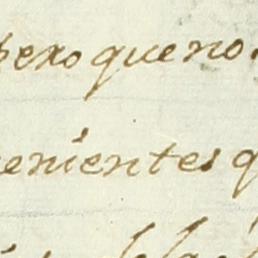 pero que no
enientes q